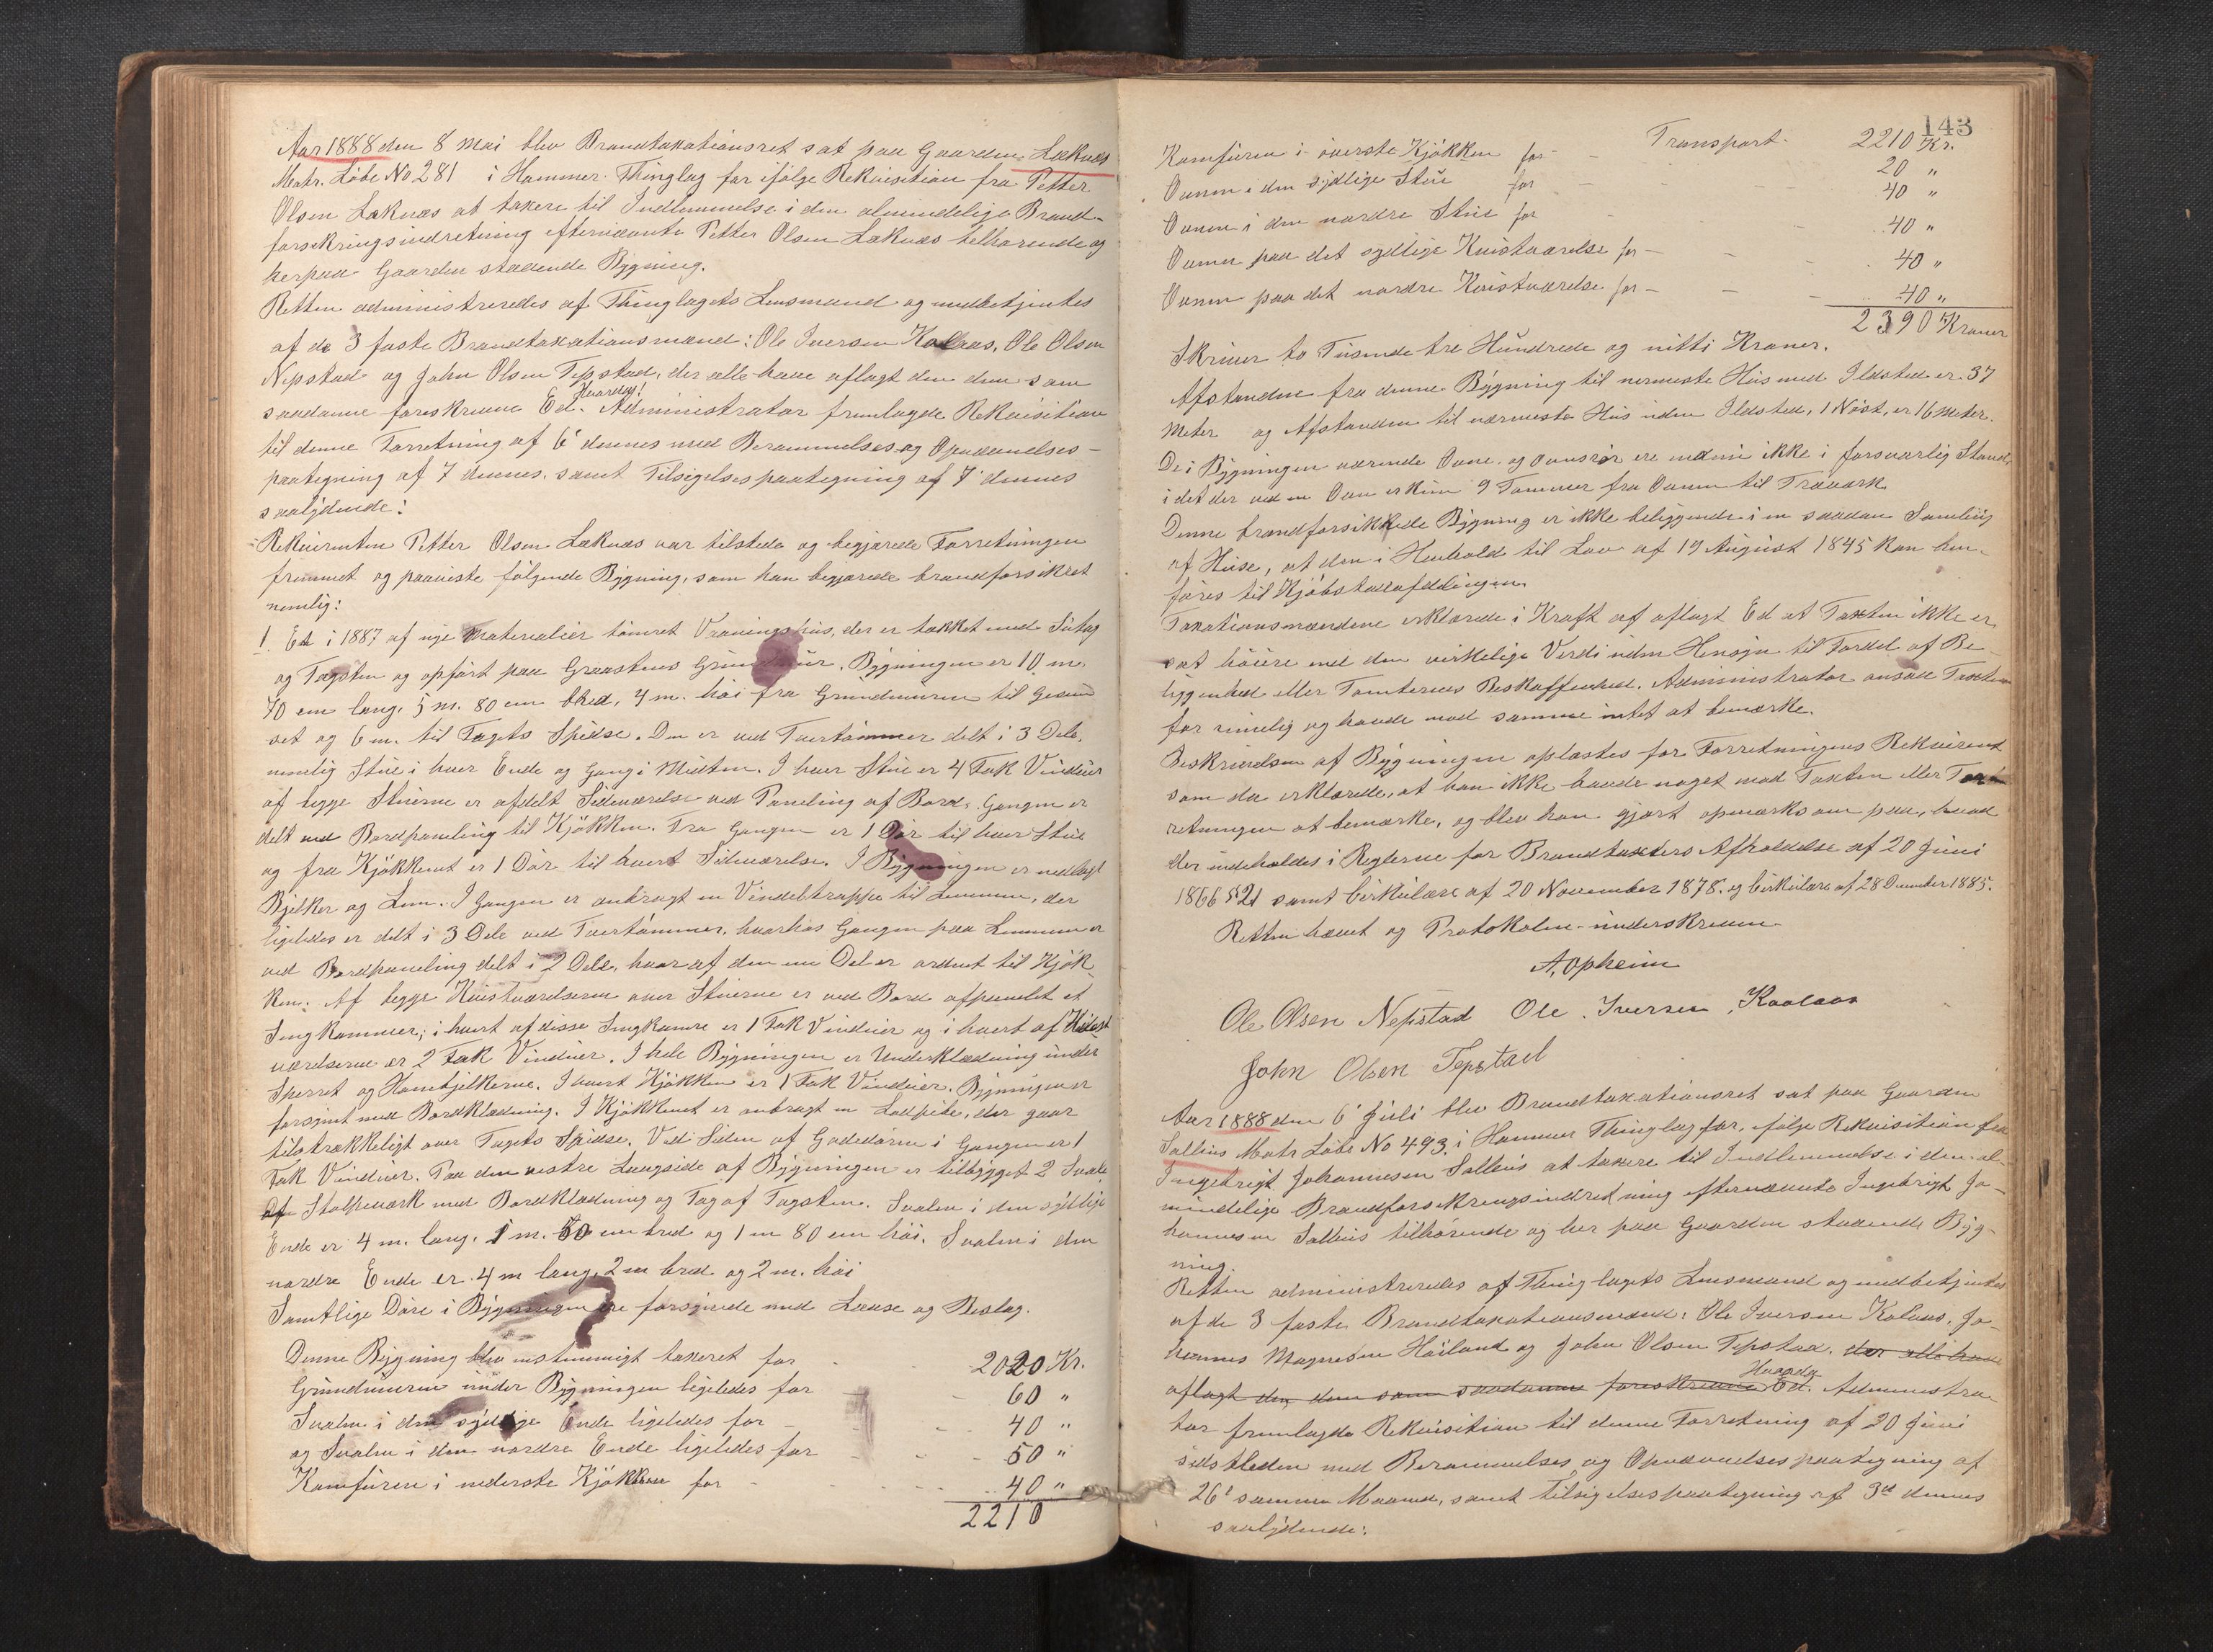 Aar 1888 den 8 Mai blev Brandtaxationsret sat paa Gaarden Læknæs
Matr. Løbe No 281 i Hammer Thinglag for ifølge Rekvisition fra Petter
Olsen Leknæs at taxere til Indlemmelse i den almindelige Brand-
forsikringsindretning efternævnte Petter Olsen Læknæs tilhørende og
herpaa Gaarden staaende Bygning.
Retten administreredes af Thinglagets Lensmand og medbetjentes
af de 3 faste Brandtaxationsmænd: Ole Iversen Kolaas, Ole Olsen
Nepstad og John Olsen Tepstad, der alle have aflagt den dem som
saadanne foreskrevne Ed. Hvorda! Administrator fremlagde Rekvisition
til denne Forretning af 6' dennes med Berammelses og Opnævnelses-
paategning af 7 dennes, samt Tilsigelsespaategning af 7' dennes
saalydende:
Rekvirenten Petter Olsen Leknæs var tilstede og begjærede Forretningen
fremmet og paaviste følgende Bygning, som han begjærede brandforsikret
nemlig:
1. Et i 1887 af nye Materialier tømret Vaaningshus, der er takket med Sutag
og Tagsten og opført paa Graastens Grundmur. Bygningen er 10 m.
70 cm lang, 5 m. 80 cm bred, 4 m. høi fra Grundmuren til Gesim
set og 6 m. til Tagets Spidse. Den er ved Tvertømmer delt i 3 Dele,
nemlig Stue i hver Ende og Gang i Midten. I hver Stue er 4 Fak Vinduer
af begge Stuerne er afdelt Sideværelse ved Paneling af Bord, Gangen er
delt med Bordpaneling til Kjøkken. Fra Gangen er 1 Dør til hver Stue
og fra Kjøkkenet er 1 Dør til hvert Sideværelse. I Bygningen er nedlagt
Bjelker og Lem. I Gangen er anbragt en Vindeltrappe til Lemmen, der
ligeledes er delt i 3 Dele ved Tvertømmer, hvorhos Gangen paa Lemmen er
ved Bordpaneling delt i 2 Dele, hvoraf den ene Del er ordnet til Kjøk
ken. Af begge Kvistværelserne over Stuerne er ved Bord afpanelet et
Sengkammer, i hvert af disse Sengkamre er 1 Fak Vinduer og i hvert af Kvist
værelserne er 2 Fak Vinduer. I hele Bygningen er Underklædning under
Sperret og Hanebjelkerne. I hvert Kjøkken er 1 Fak Vinduer. Bygningen er
forsynet med Bordklædning. I Kjøkkenet er anbragt en Ladpibe, der gaar
tilstrækkeligt over Tagets Spidse. Ved Siden af Gadedøren i Gangen er 1
Fak Vinduer. Paa den vestre Langside af Bygningen er tilbygget 2 Svale
af Stolpeværk med Bordklædning og Tag af Tagsten. Svalen i den sydlige
Ende er 4 m. lang, 1 m. 50 cm bred og 1 m 80 cm høi. Svalen i den
nordre Ende er 4 m lang, 2 m bred og 2 m. høi
Samtlige Døre i Bygningen ere forsynede med Laase og Beslag.
Denne Bygning blev enstemmigt taxeret for 2020 Kr.
Grundmuren under Bygningen ligeledes for - 60 "
Svalen i den sydlige Ende ligeledes for - 40 "
og Svalen i den nordre Ende ligeledes for - 50 "
Komfuren i nederste Kjøkken for - 40 "
2210
143
Transport. 2210 Kr.
Komfuren i øverste Kjøkken for - 20 "
Ovnen i den sydlige Stue for - 40 "
Ovnen i den nordre Stue for - 40 "
Ovnen paa det sydlige Kvistværelse for - 40 "
Ovnen paa det nordre Kvistværelse for - 40 "
2390 Kroner
Skriver to Tusende tre Hundrede og nitti Kroner.
Afstanden fra denne Bygning til nermeste Hus med Ildsted er 37
Meter og Afstanden til nærmeste Hus uden Ildsted, 1 Nøst, er 16 meter.
De i Bygningen værende Ovne og Ovnsrør ere endnu ikke i forsvarlig Stand,
i det der ved en Ovn er kun 9 Tommer fra Ovnen til Træværk
Denne brandforsikkrede Bygning er ikke beliggende i en saadan Samling
af Huse, at den i Henhold til Lov af 19 August 1845 kan hen-
føres til Kjøbstadafdelingen.
Taxationsmændene erklærede i Kraft af aflagt Ed at Taxten ikke er
sat høiere end den virkelige Verdi uden Hensyn til Fordel af Be-
liggenhed eller Tomternes Beskaffenhed. Administrator ansaa Taxten
for rimelig og havde mod samme intet at bemærke.
Beskrivelsen af Bygningen oplæstes for Forretningens Rekvirent
som da erklærede, at han ikke havde noget mod Taxten eller For
retningen at bemærke, og blev han gjort opmærksom paa, hvad
der indeholdes i Reglerne for Brandtaxters Afholdelse af 20 Juni
1866 § 21 samt Cirkulære af 20 November 1878. og Cirkulære af 28 December 1885.
Retten hævet og Protokolen underskreven.
A. Opheim
Ole Olsen Nepstad Ole Iversen Kaalaas
John Olsen Tepstad
Aar 1888 den 6' Juli blev Brandtaxationsret sat paa Gaarden
Salhus Matr Løbe No 493. i Hammer Thinglag for, ifølge Rekvisition fra
Ingebrigt Johannesen Salhus at taxere til Indlemmelse i den al-
mindelige Brandforsikringsindretning efternævnte Ingebrigt Jo-
hannesen Salhus tilhørende og her paa Gaarden staaende Byg-
ning.
Retten administreredes af Thinglagets Lensmand og medbetjentes
af de 3 faste Brandtaxationsmænd: Ole Iversen Kolaas, Jo-
hannes Magnesen Høiland og John Olsen Tepstad. der alle have
aflagt den dem som saadanne foreskrevne Ed. Hvorda Administra
tor fremlagde Rekvisition til denne Forretning af 20 Juni
sidstleden med Berammelses og Opnævnelsespaategning af
26' samme Maaned, samt Tilsigelsespaategning af 3d dennes
saalydende: